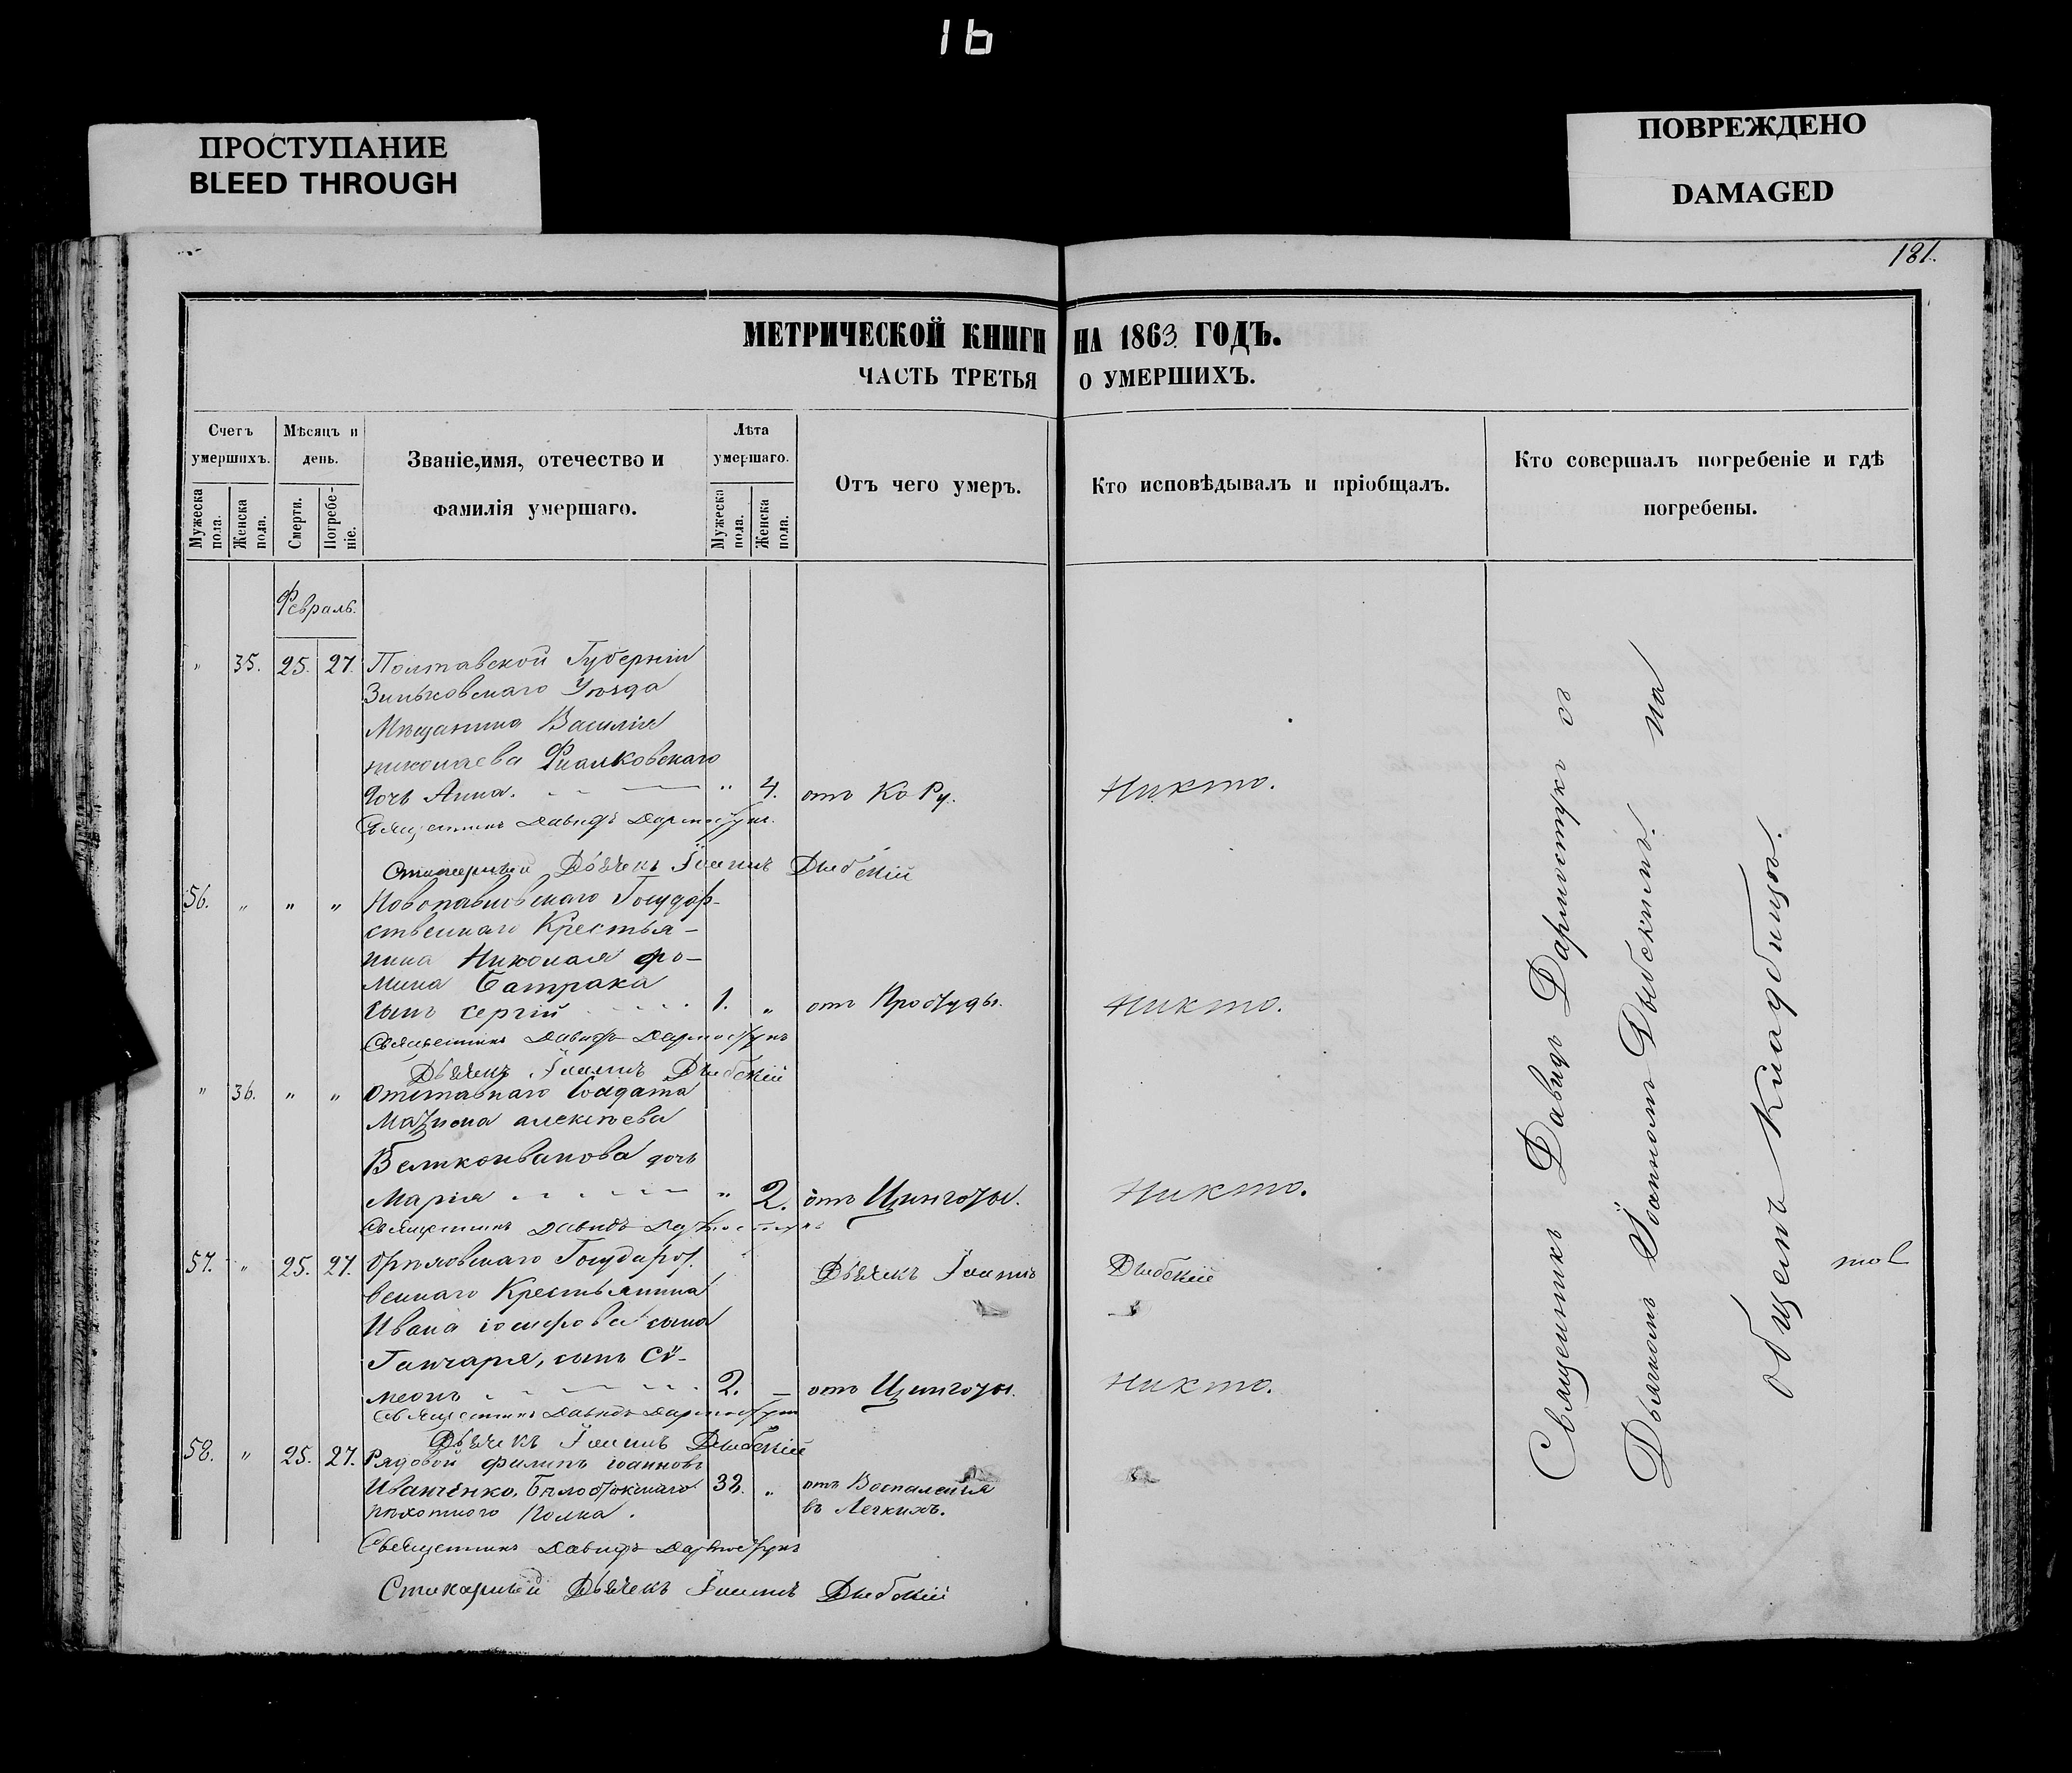 16
ПРОСТУПАНИЕ
BLEED THROUGH
ПОВРЕЖДЕНО
DAMAGED
181.
МЕТРИЧЕСКОЙ КНИГИ НА 1863 ГОДЪ.
ЧАСТЬ ТРЕТЬЯ О УМЕРШИХЪ.
Счетъ умершихъ.
Мужеска пола.
Женска пола.
Мѣсяцъ и день.
Смерти.
Погребе-ніе.
Званіе,имя, отечество и
фамилія умершаго.
Лѣта умершаго.
Мужеска пола.
Женска пола.
Отъ чего умеръ.
Кто исповѣдывалъ и пріобщалъ.
Кто совершалъ погребеніе и гдѣ
погребены.
Февраль.
" 35. 25. 27. Полтавской Губерніи
Зиньковскаго Уѣзда
Мѣщанина Василія
николаева Фиалковскаго
дочь Анна. " 4. отъ Кору. Никто.
Священникъ Давидъ Дармостукъ.
Стихарный Дьячекъ Іоаннъ Дыбскій
56. " " " Новопавловскаго Государ-
ственнаго Крестья-
нина Николая Фо-
мина Батрака
сынъ Сергій 1. " отъ Простуды. Никто.
Священникъ Давидъ Дармостукъ
Дьячекъ Іоаннъ Дыбскій
" 36. " " Отставнаго Солдата
алексѣева
Великоиванова дочь
Марія " 2. отъ Цынготы. Никто.
Священникъ Давидъ Дармостукъ
57. " 25. 27. Государст.
веннаго Крестьянина Дьячекъ Іоаннъ Дыбскій
Ивана іосифова сына
Ганчаря, сынъ Сѵ-
меонъ 2. — отъ Цынготы. Никто.
Священникъ Давидъ Дармостукъ
Дьячекъ Іоаннъ Дыбскій
58. " 25. 27. Рядовой Филипъ іоанновъ
Иванченко, Бѣлостокскаго 32. " отъ Воспаленія
пѣхотнаго Полка. въ Легкихъ.
Священникъ Давидъ Дармостукъ
Стихарный Дьячекъ Іоаннъ Дыбскій
Священникъ Давидъ Дармостукъ съ
Дьячкомъ Іоанномъ Дыбскимъ. На
общемъ Кладбищѣ.